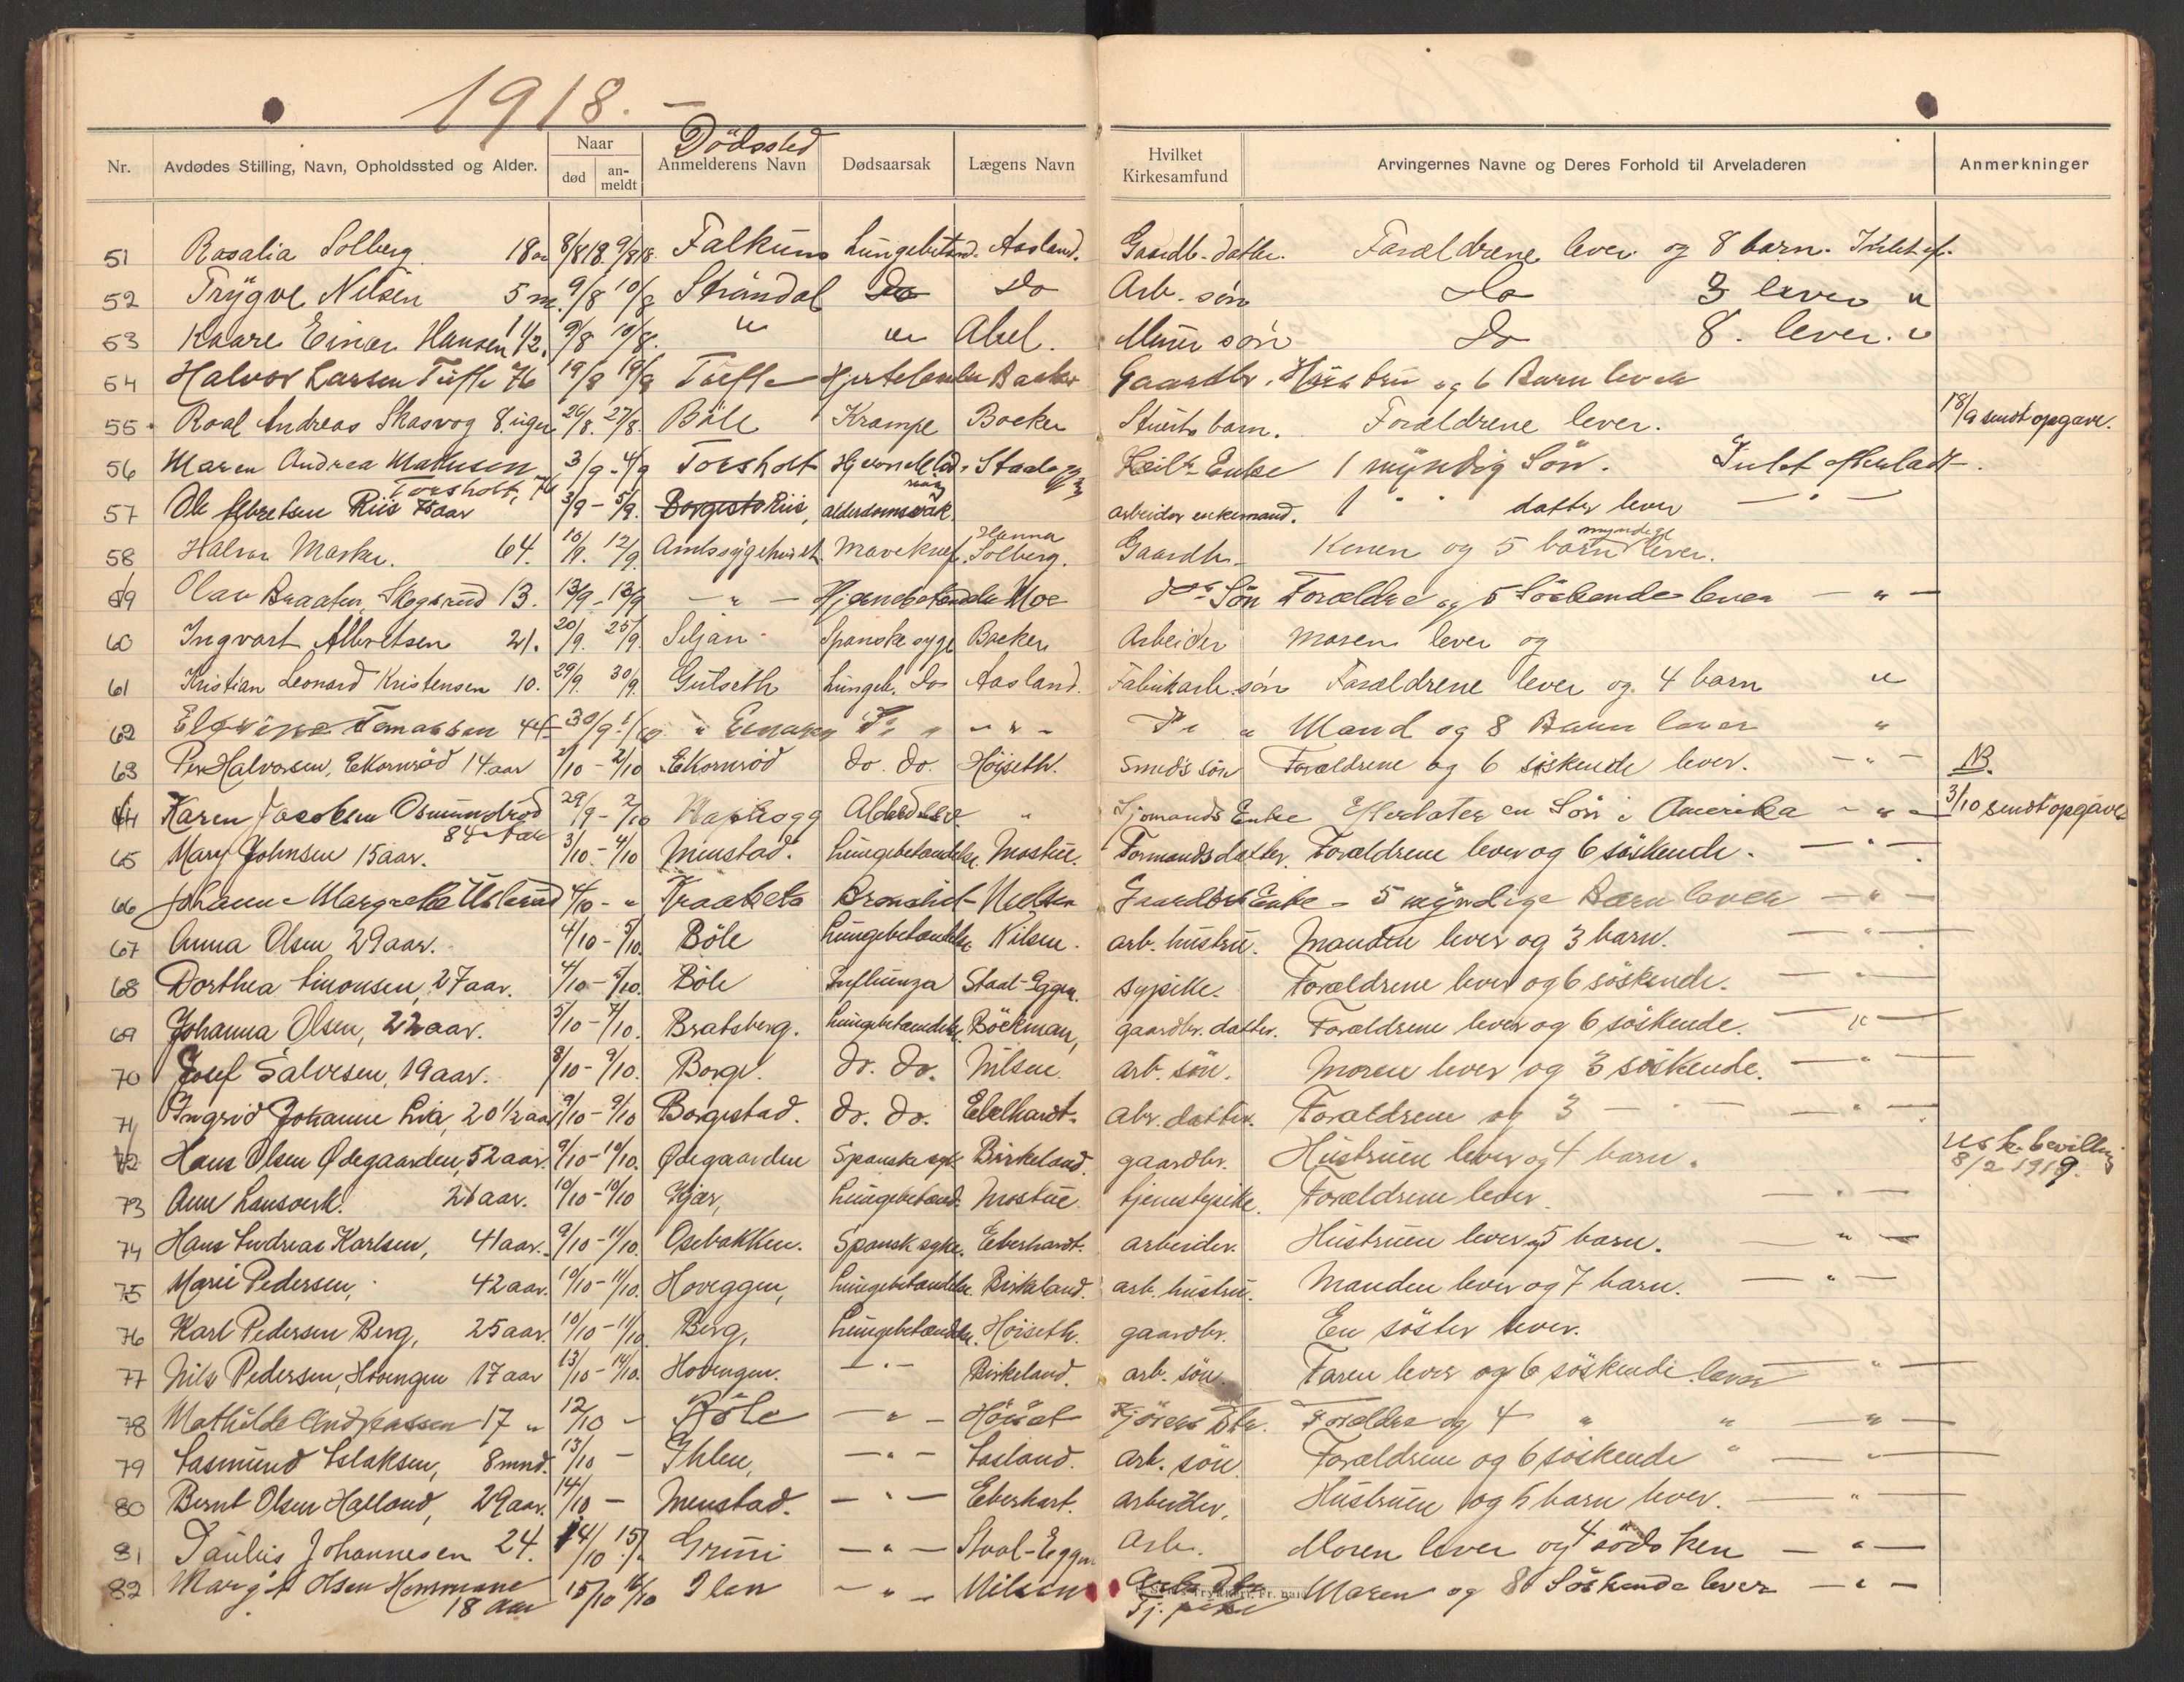 1918. —
Nr. Avdødes Stilling, Navn, Opholdssted og Alder. Naar død an-meldt Dödssted Anmelderens Navn Dødsaarsak Lægens Navn Hvilket Kirkesamfund Arvingernes Navne og Deres Forhold til Arveladeren Anmerkninger
51 Rosalia Solberg 18 aar 8/8 18 9/8 18. Falkum Lungebetænd. Aasland. Gaardb. datter. Forældrene lever og 8 barn.
52 Trygve Nilsen 5 m. 9/8 10/8 Strömdal Do Do Arb. søn Do 3 lever "
53 Kaare Einar Hansen 1 1/2. 9/8 10/8. " " Abel. Murer søn Do 8. lever. "
54 Halvor Larsen Tufte 76 19/8 19/8 Tufte Backer Gaardbr. Hustru og 6 Barn lever
55. Roal Andreas Skasvog 8. uger 26/8. 27/8. Böle Krampe Backer barn. Forældrene lever. 18/9 sendt opgave.
56 Maren Andrea Madsen Torsholt, 76 3/9 - 4/9 Torsholt Enke 1 myndig Sön. Intet efterladt.
57 Ole Albretsen Riis 75 aar 3/9 - 5/9. Borgesto Riis, alderdomssvak. arbeider enkemand. 1 " datter lever — " —
58 Halvor 64. 10/9. 12/9. Amtssygehuset Mavekræft Hanna Solberg. Gaardb. Konen og 5 myndige barn lever.
59 Olav Braaten, 13. 13/9 - 13/9 — " — Hjernebetændelse Moe Søn Forældre og 5 Söskende lever — " —
60 Ingvart Albretsen 21. 20/9. 25/9. Siljan Spanske syge Backer Arbeider Moren lever og
61 Kristian Leonard Kristensen 10. 29/9. 30/9. Gulseth Lungeb. Do Aasland. Fabrikarb. søn Forældrene lever og 4 barn "
62 Tomassen 44 30/9. 1/10. " — " — " Mand og 8 Barn lever "
63 Per Halvorsen, Ekornröd 14 aar 2/10 - 2/10 Ekornröd do. do. Höiseth. Smeds sön Forældrene og 6 söskende lever. — " — NB.
64 Karen Jacobsen Osmundröd 84 aar 29/9 - 2/10 " Sjömands Enke Efterlater en Sön i Amerika — " — 3/10 sendt opgave
65 Mary Johnsen 15 aar. 3/10. - 4/10 Menstad. Lungebetændelse. Mostue. Formandsdatter. Forældrene lever og 6 söskende. — " —
66 Johanne Margrethe 4/10 - " Nielsen Enke - 5 myndige Barn lever — " —
67 Anna Olsen 29 aar. 4/10 - 5/10. Böle Lungebetændelse. Nilsen. arb. hustru. Manden lever og 3 barn. — " —
68 Dorthea Simonsen, 27 aar. 4/10 - 5/10. Böle Influenza Staal-Eggen. sypike. Forældrene lever og 6 söskende. — " —
69 Johanna Olsen, 22 aar. 5/10 - 7/10. Bratsberg. Lungebetændelse. Böckman, gaardbr. datter. Forældrene lever og 6 söskende. — " —
70 Josef Salvesen, 19 aar. 8/10 - 9/10. Borge. do. do. Nilsen arb. sön. Moren lever og 3 söskende. — " —
71 Ingrid Johanne Lia, 20 1/2 aar 9/10 - 9/10 Borgestad. do. do. Eberhardt. abr. datter. Forældrene og 3 — " — — " —
72 Hans Olsen Ødegaarden, 52 aar. 9/10 - 10/10. Ødegaarden Spanske syk. Birkeland. gaardbr. Hustruen lever og 4 barn. Usk. bevilling 8/2 1919.
73 Anne Lansverk. 21 aar. 10/10 - 10/10 Kjær, Lungebetænd. Mostue tjenestepike. Forældrene lever. — " —
74 Hans Andreas Karlsen, 41 aar. 9/10 - 11/10. Osebakken. Spansk syke. Eberhardt. arbeider. Hustruen lever og 5 barn. — " —
75 Marie Pedersen, 42 aar. 10/10 - 11/10. Hoveggen, Lungebetændelse. Birkeland. arb. hustru. Manden lever og 7 barn. — " —
76 Karl Pedersen Berg, 25 aar. 10/10 - 11/10 Berg, Lungebetændelse. Höiseth. gaardbr. En söster lever.
77 Nils Pedersen, Hovengen 17 aar 13/10 - 14/10. Hovengen. — " — Birkeland. arb. sön. Faren lever og 6 söskende lever — " —
78 Mathilde Andreassen 17 " 12/10 - Böle — " — Höisæt Kjörers Dtr. Forældre og 4 " " — " —
79 Aasmund Aslaksen, 8 mnd. 13/10 - Ihlen, — " — Aasland. arb. sön. Forældrene og 6 söskende " — " —
80 Bernt Olsen Halland, 29 aar. 14/10 - Menstad. — " — Eberhart. arbeider. Hustruen og 5 barn lever. — " —
81 Paulus Johannesen 24. 14/10 15/" Grini — " — Staal-Eggen Arb. Moren lever og 4 södsken — " —
82 Margit Olsen 18 aar 15/10 16/10 Ilen — " — Nilsen Arb Dtr Tj. pike Moren og 8 Söskende lever — " —